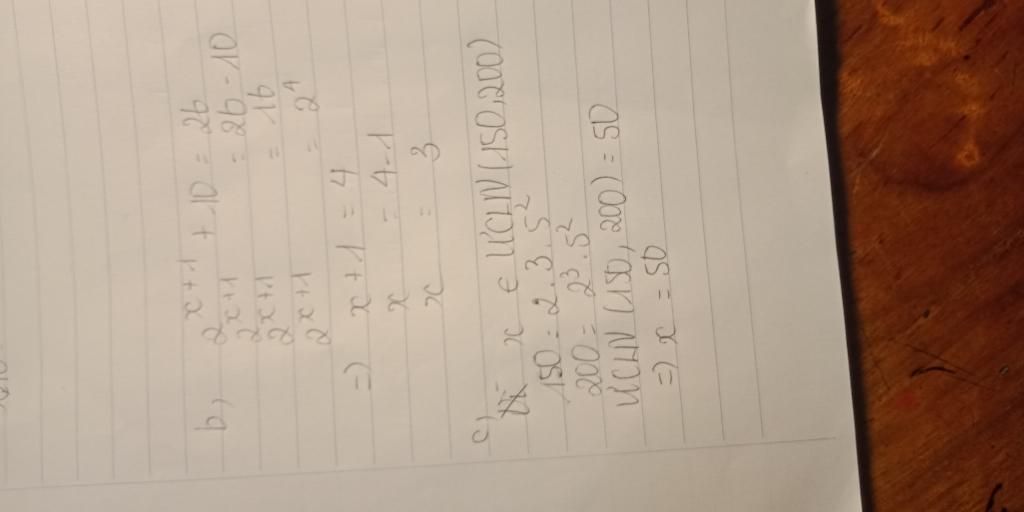 b, 2^{x+1} + 10 = 26
2^{x+1} = 26 - 10
2^{x+1} = 16
2^{x+1} = 2^4
=> x + 1 = 4
x = 4 - 1
x = 3
c,
x ∈ ƯCLN (150, 200)
150 = 2 . 3 . 5^2
200 = 2^3 . 5^2
ƯCLN (150, 200) = 50
=> x = 50